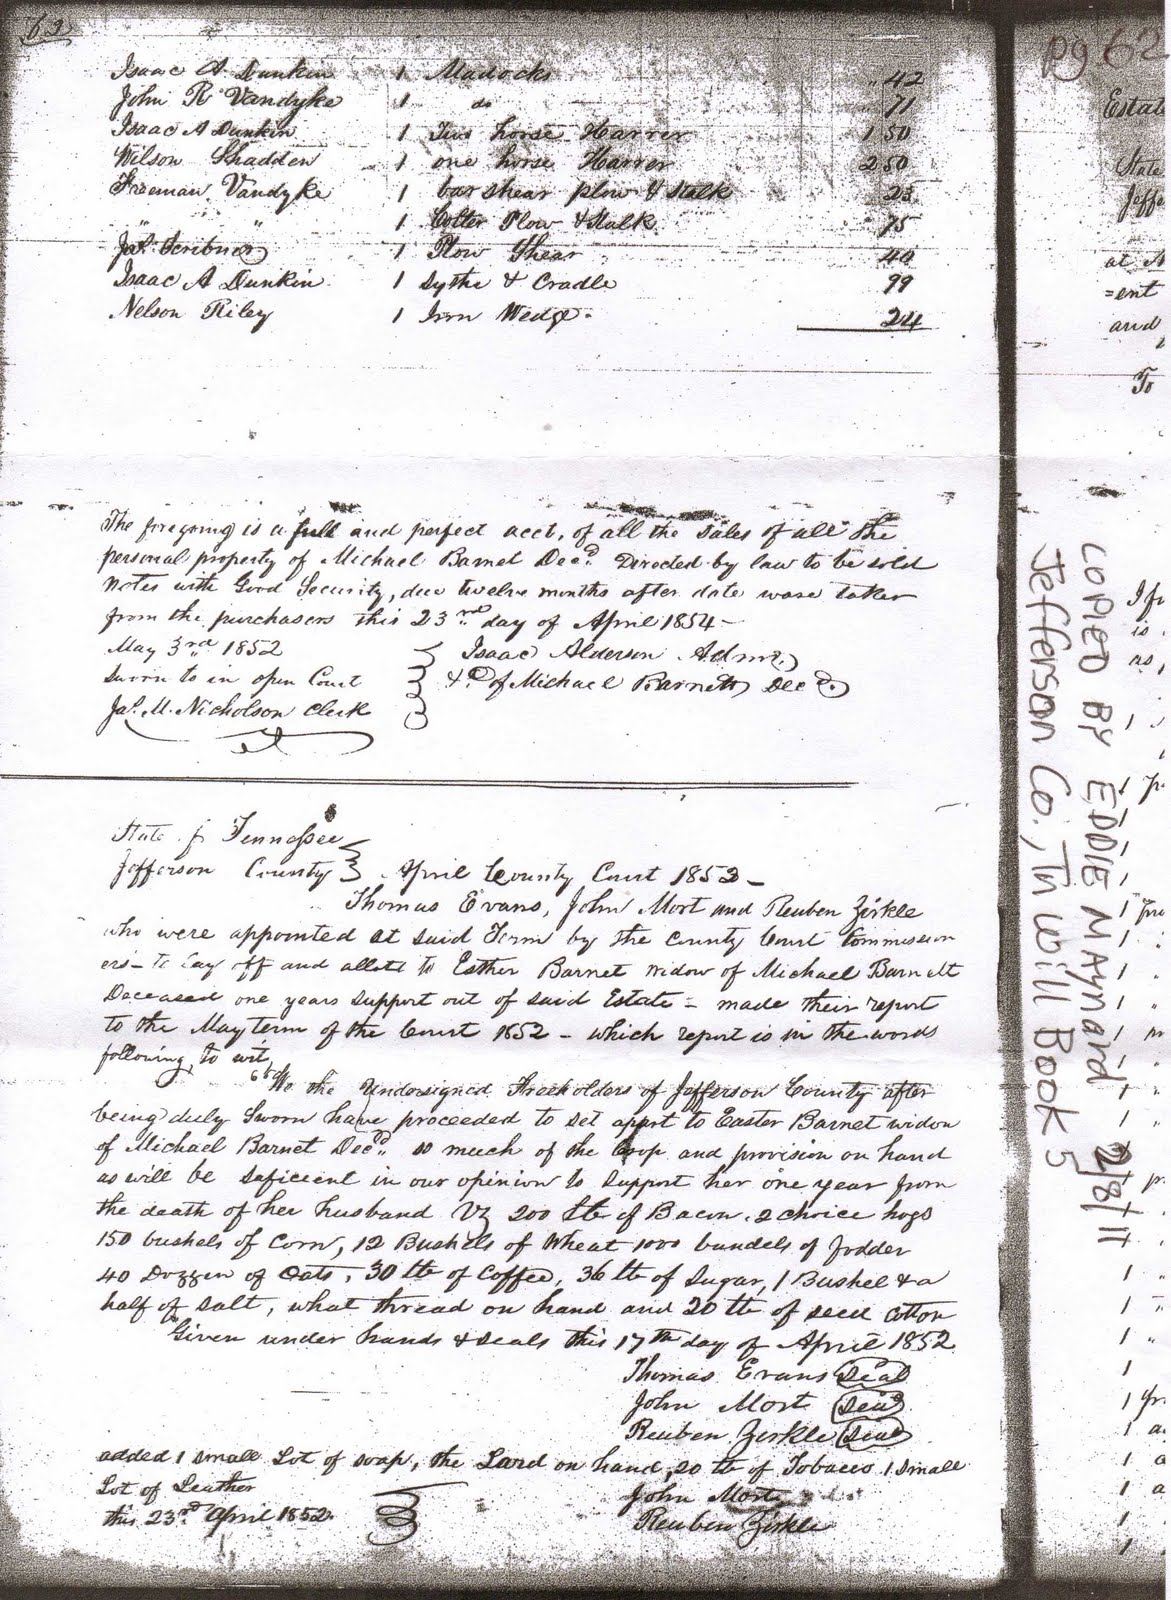 63
Isaac A. Dunkin 1 Madocks " 42
John R Vandyke 1 do " 71
Isaac A Dunkin 1 Two horse Harrer 1 50
Wilson Shadden 1 one horse Harrer 2 50
Freeman Vandyke 1 bar shear plow & Stalk 25
" " 1 Cotter Plow & Stalk 75
Jas. Scribner 1 Plow Shear 40
Isaac A Dunkin 1 Sythe & Cradle 99
Nelson Riley 1 Iron Wedge 24
The foregoing is a full and perfect acct, of all the sales of all the
personal property of Michael Barnet Decd. Directed by law to be sold
Notes with Good Security, due twelve months after date ware taken
from the purchasers this 23rd day of April 1854 -
May 3rd 1852 Isaac Alderson Admr.
Sworn to in open Court &c of Michael Barnett Decd.
Jas. M. Nicholson Clerk
State of Tennessee
Jefferson County April County Court 1852 -
Thomas Evans, John Mort and Reuben Zirkle
who were appointed at said Term by the County Court Commission
ers - to Lay off and allott to Esther Barnet widow of Michael Barnett
Deceased one years support out of said Estate - made their report
to the May term of the Court 1852 - which report is in the words
following, to wit,
We the Undersigned Freeholders of Jefferson County after
being duly Sworn have proceeded to set appt to Easter Barnet widow
of Michael Barnet Decd. so much of the Crop and provision on hand
as will be suficient in our opinion to support her one year from
the death of her husband Vz 200 lb of Bacon, 2 choice hogs
150 bushels of Corn, 12 Bushels of Wheat 1000 bundels of fodder
40 Dozzen of Oats, 30 lb of Coffee, 36 lb of Sugar, 1 Bushel & a
half of salt, what thread on hand and 20 lb of seed cotton
Given under hands & seals this 17th day of April 1852
Thomas Evans seal
John Mort seal
Reuben Zirkle seal
added 1 small Lot of soap, the Lard on hand, 20 lb of Tobacco 1 small
Lot of Leather John Mort
this 23rd April 1852 Reuben Zirkle
COPIED BY EDDIE MAYNARD 2/8/11
Jefferson Co., Tn Will Book 5
pg 62
Estat
State
Jeffe
at
=ent
and
To